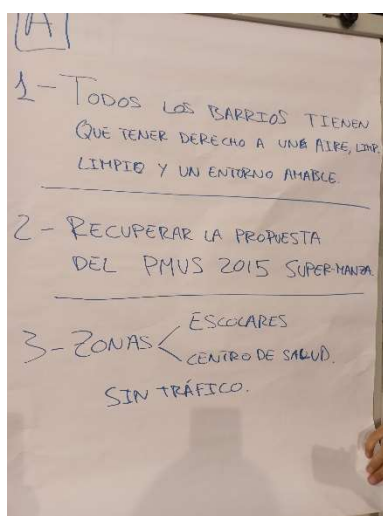 A
1 - TODOS LOS BARRIOS TIENEN
QUE TENER DERECHO A UN AIRE, LIMP.
LIMPIO Y UN ENTORNO AMABLE.
2 - RECUPERAR LA PROPUESTA
DEL PMUS 2015 SUPER-MANZA.
3 - ZONAS ESCOLARES
CENTRO DE SALUD.
SIN TRÁFICO.